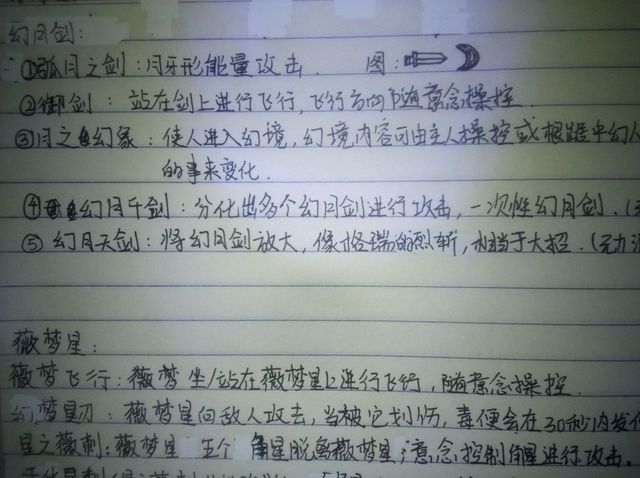 幻月剑:
①弧月之剑:月牙形能量攻击. 图:
②御剑: 站在剑上进行飞行,飞行方向随意念操控.
③月之幻象:使人进入幻境,幻境内容可由主人操控或根据中幻人
的事来变化.
④幻月千剑:分化出多个幻月剑进行攻击,一次性幻月剑.(
⑤幻月天剑:将幻月剑放大,像格瑞的烈斩,相当于大招.(元力
薇梦星:
薇梦飞行:薇梦坐/站在薇梦星上进行飞行,随意念操控.
幻梦星刃:薇梦星向敌人攻去,当被它划伤,毒便会在30秒内发作
星之薇刺:薇梦星 五个 角星脱离薇梦星,意念控制角星进行攻击.